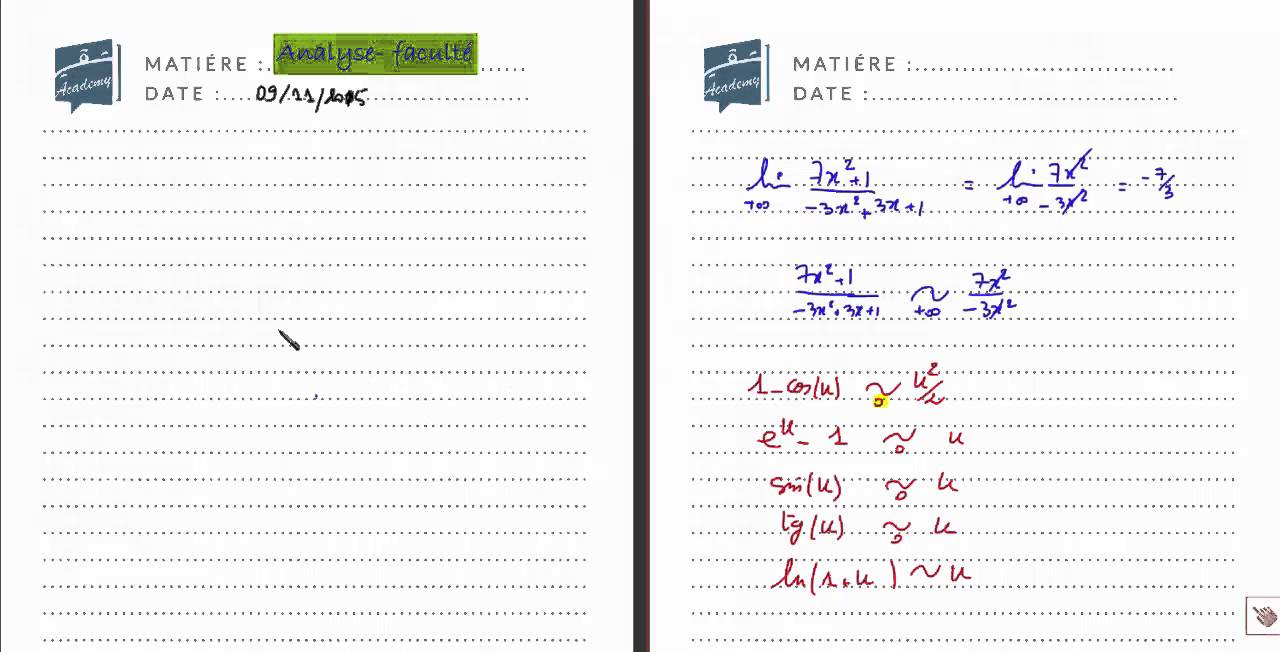 Academy
MATIÉRE : Analyse-faculté
DATE : 09/11/2015
Academy
MATIÉRE :
DATE :
lim +∞ 7x²+1 / -3x²+3x+1 = lim +∞ 7x² / -3x² = -7/3
7x²+1 / -3x²+3x+1 ~ +∞ 7x² / -3x²
1-cos(u) ~ 0 u²/2
e^u - 1 ~ 0 u
sin(u) ~ 0 u
tg(u) ~ 0 u
ln(1+u) ~ u